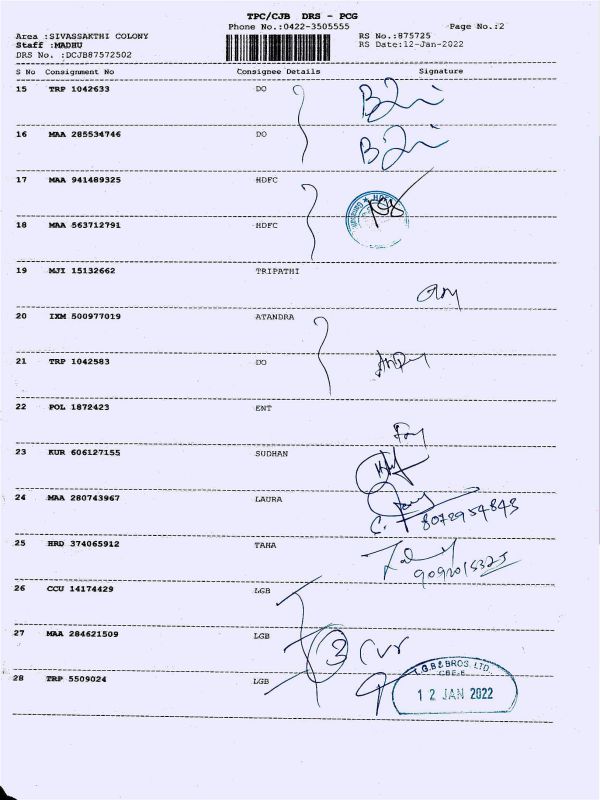 TPC/CJB DRS - PCG
Phone No.:0422-3505555 Page No.:2
Area :SIVASSAKTHI COLONY RS No.:875725
Staff :MADHU RS Date:12-Jan-2022
DRS No. :DCJB87572502
S No Consignment No Consignee Details Signature
15 TRP 1042633 DO
16 MAA 285534746 DO
17 MAA 941489325 HDFC
18 MAA 563712791 HDFC
19 MJI 15132662 TRIPATHI
20 IXM 500977019 ATANDRA
21 TRP 1042583 DO
22 POL 1872423 ENT
23 KUR 606127155 SUDHAN
24 MAA 280743967 LAURA
25 HRD 374065912 TAHA
26 CCU 14174429 LGB
27 MAA 284621509 LGB
3
28 TRP 5509024 LGB
L.G.B & BROS. LTD.
12 JAN 2022